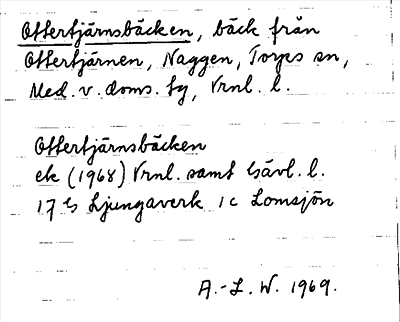 Ottertjärnsbäcken, bäck från
Ottertjärnen, Naggen, Torps sn,
Med. v. doms. tg, Vrnl. l.
Ottertjärnsbäcken
ek (1968) Vrnl. samt Gävl. l.
17 G Ljungaverk 1c Lomsjön
A.-L. W. 1969.